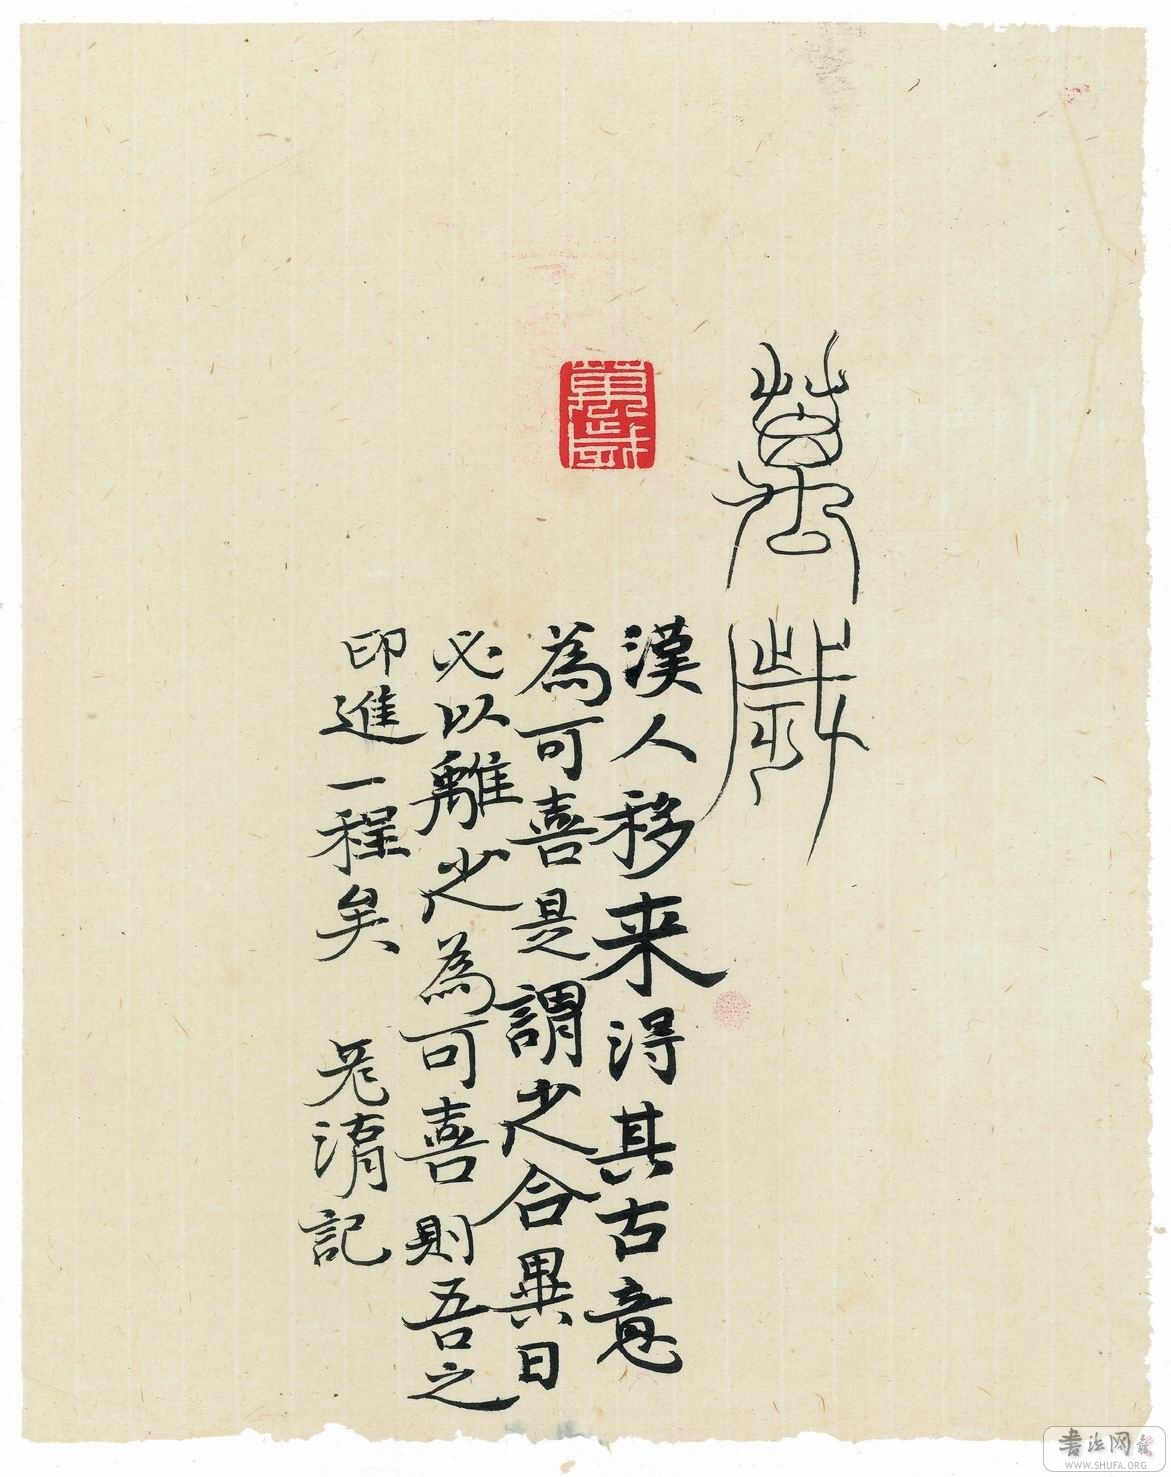 萬歲
萬歲
漢人移来得其古意
為可喜是謂之合異日
必以離之為可喜則吾之
印進一程矣
記
书法网
WWW.SHUFA.ORG